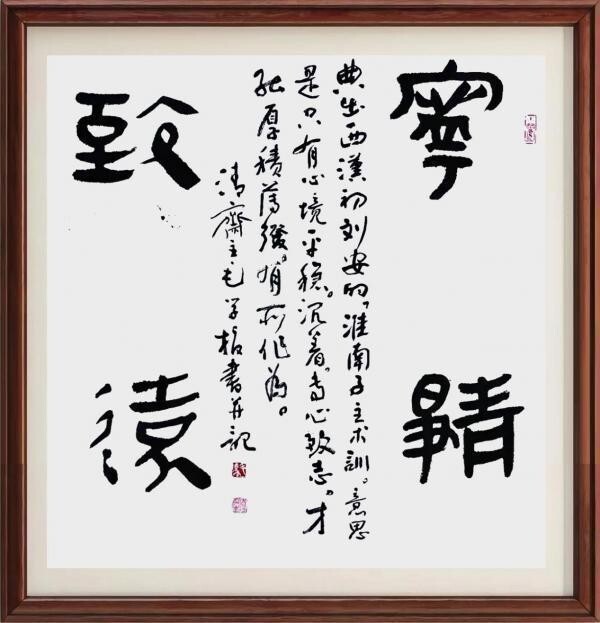 寧靜
典出西漢初刘安的“淮南子主术訓。意思
是只有心境平稳。沉着。专心致志。才
能厚積薄發。有所作為。
清齋主毛学指書并記
致遠